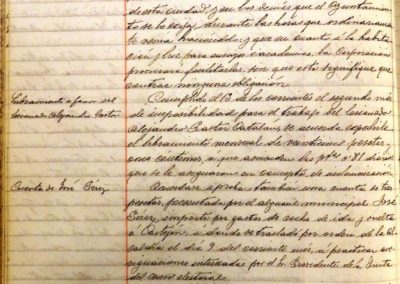 de esta ciudad, y en los demás que el Ayuntamien-
to se lo exija, durante las horas que ordinariamen-
te venía haciéndolo, y que en cuanto á la habita-
ción y luz para ensayo ó academia, la Corporación
procurará facilitarlas, sin que esto signifique que
contrae ninguna obligación.
Libramiento á favor del
lesionado Alejandro Pastor
Cumplido el 13 de los corrientes el segundo mes
de imposibilidad para el trabajo del lesionado
Alejandro Pastor Catalan, se acuerda expedirle
el libramiento mensual de veintiunas pesetas,
once céntimos, á que ascienden las ptas 0'71 diarias
que se le asignaron en concepto de indemnización
Cuenta de José Pérez
Acordóse aprobar también una cuenta de tres
pesetas, presentada por el alguacil municipal José
Pérez, importe por gastos de coche de ida y vuelta
á Castejón, á donde se trasladó por orden de la Al-
caldía el día 9 del corriente mes, á practicar ave-
riguaciones interesadas por el Sr. Presidente de la Junta
del censo electoral.